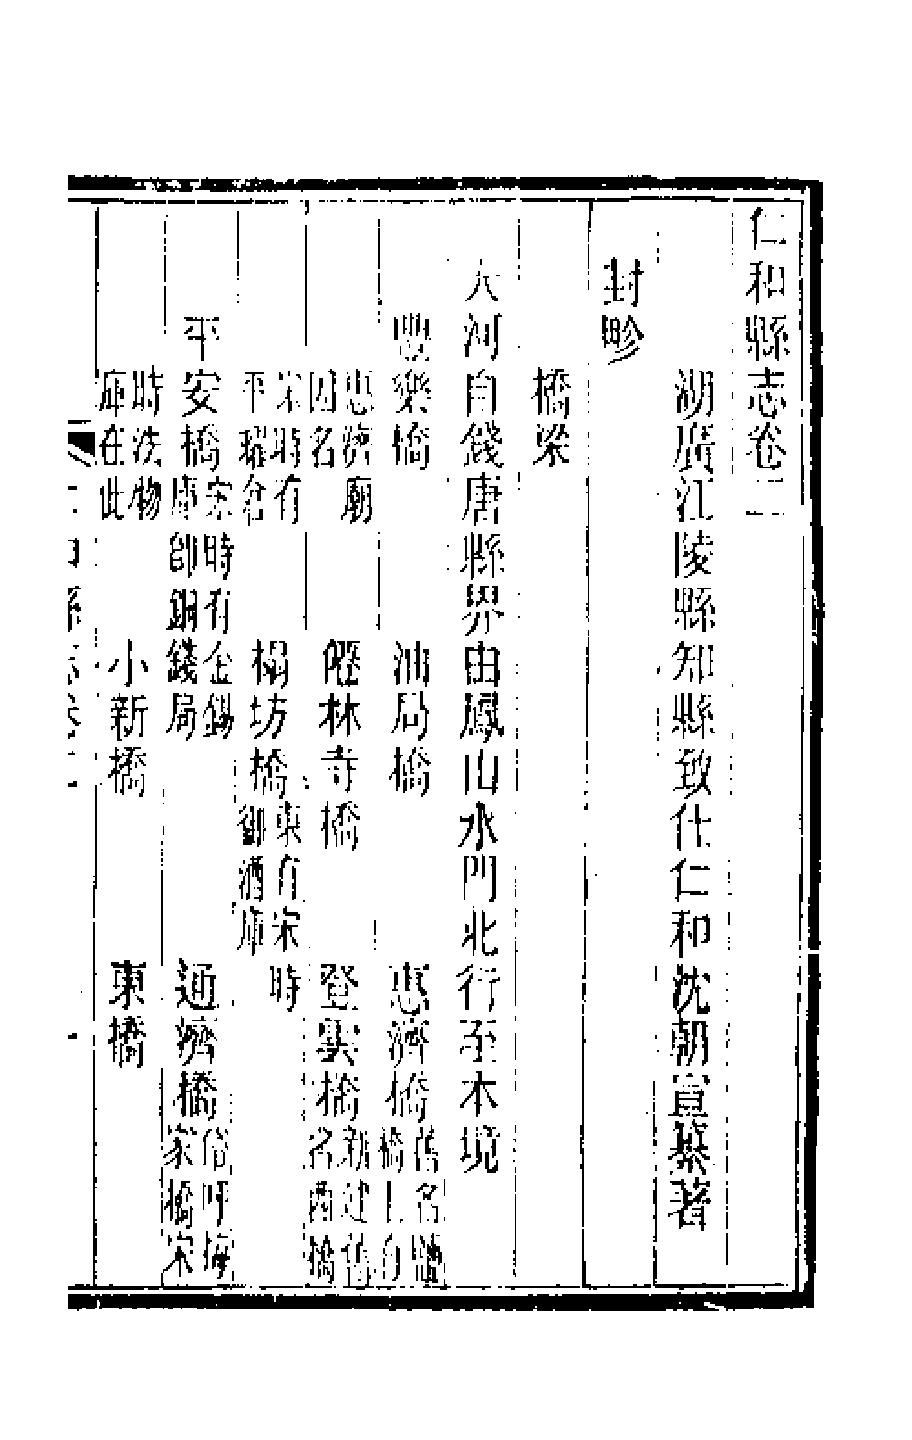 仁和縣志卷二
湖廣江陵縣知縣致仕仁和沈朝宣纂著
封畛
橋梁
大河自錢唐縣界由鳳山水門北行至本境
豐樂橋 油局橋 惠濟橋舊名鹽橋上有
惠濟廟因名 林寺橋 登雲橋新建舊名西橋
宋時有平糴倉 榻坊橋東有宋時御酒庫
平安橋宋時有金錫庫師銅錢局 通濟橋俗呼梅家橋宋
時洗物庫在此 小新橋 東橋